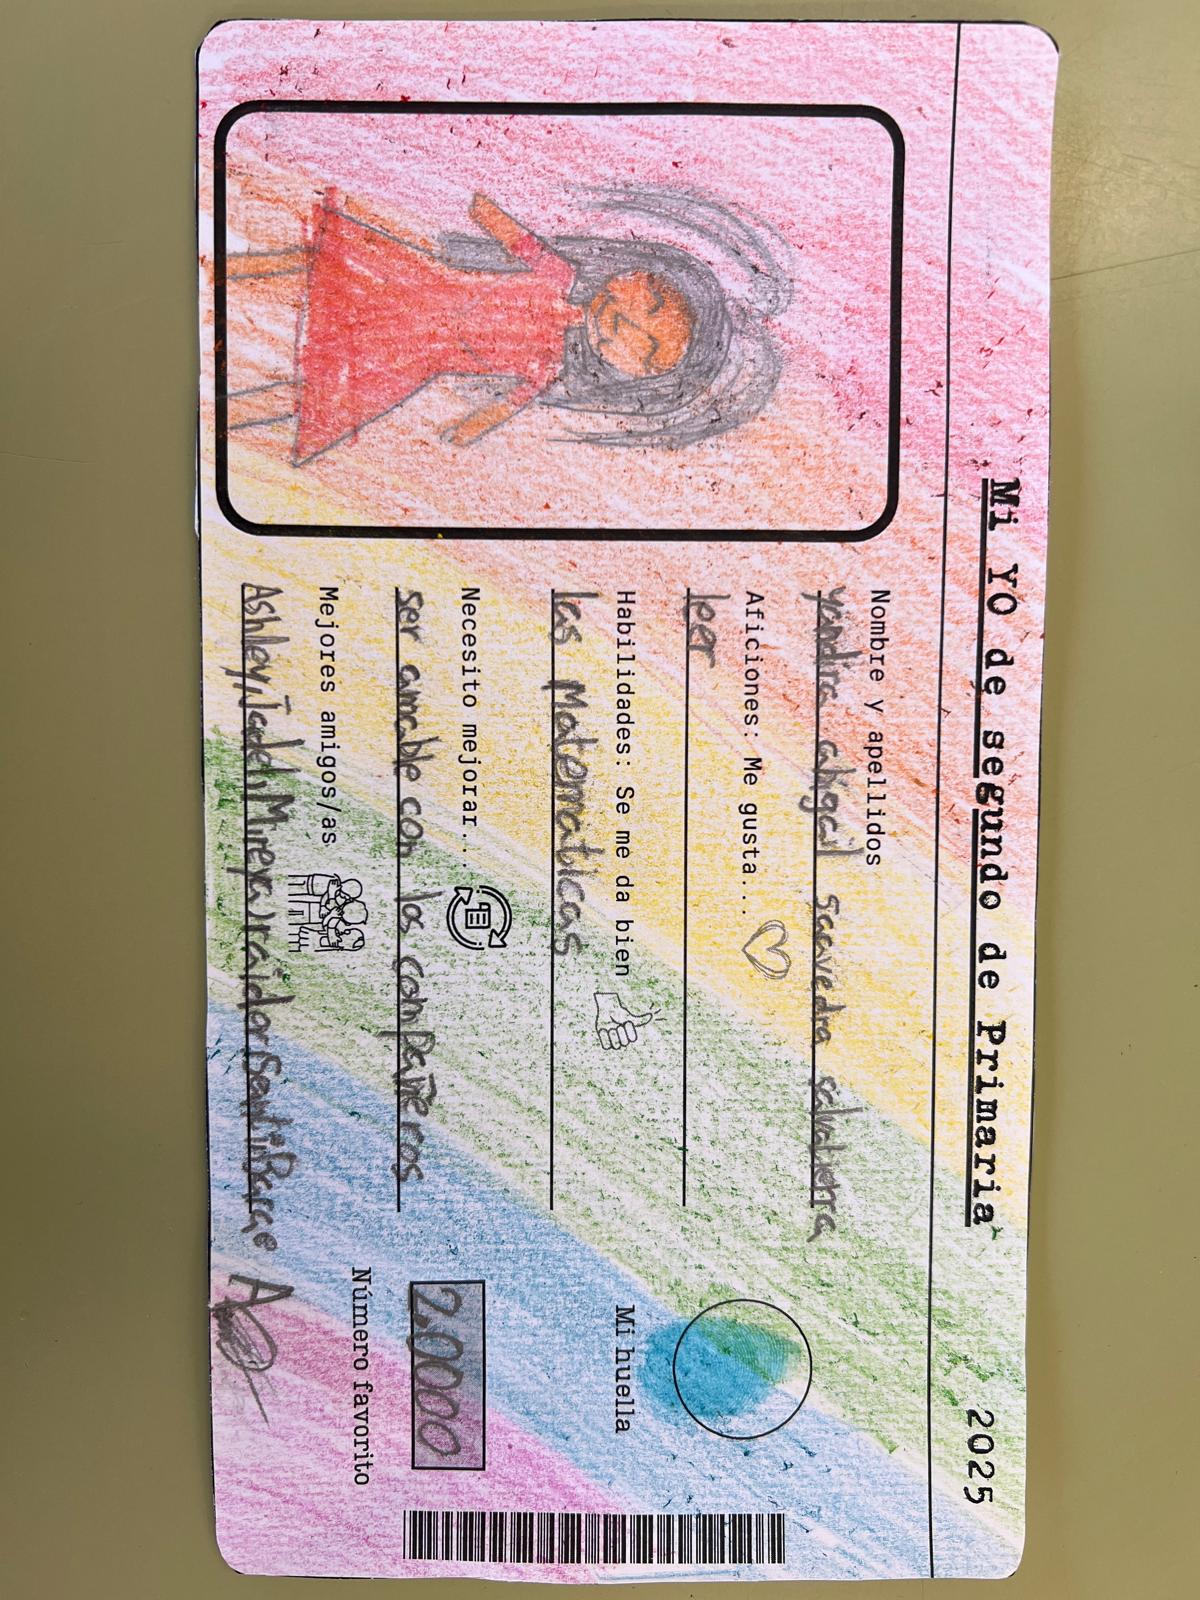 Mi YO de segundo de Primaria
2025
Nombre y apellidos
yandira abigail saavedra salvatierra
Aficiones: Me gusta...
leer
Habilidades: Se me da bien
las Matematicas
Necesito mejorar...
ser amable con los compañeros
Mejores amigos/as
Ashley, Jadel, Mireya, raider, Santi
Mi huella
20000
Número favorito